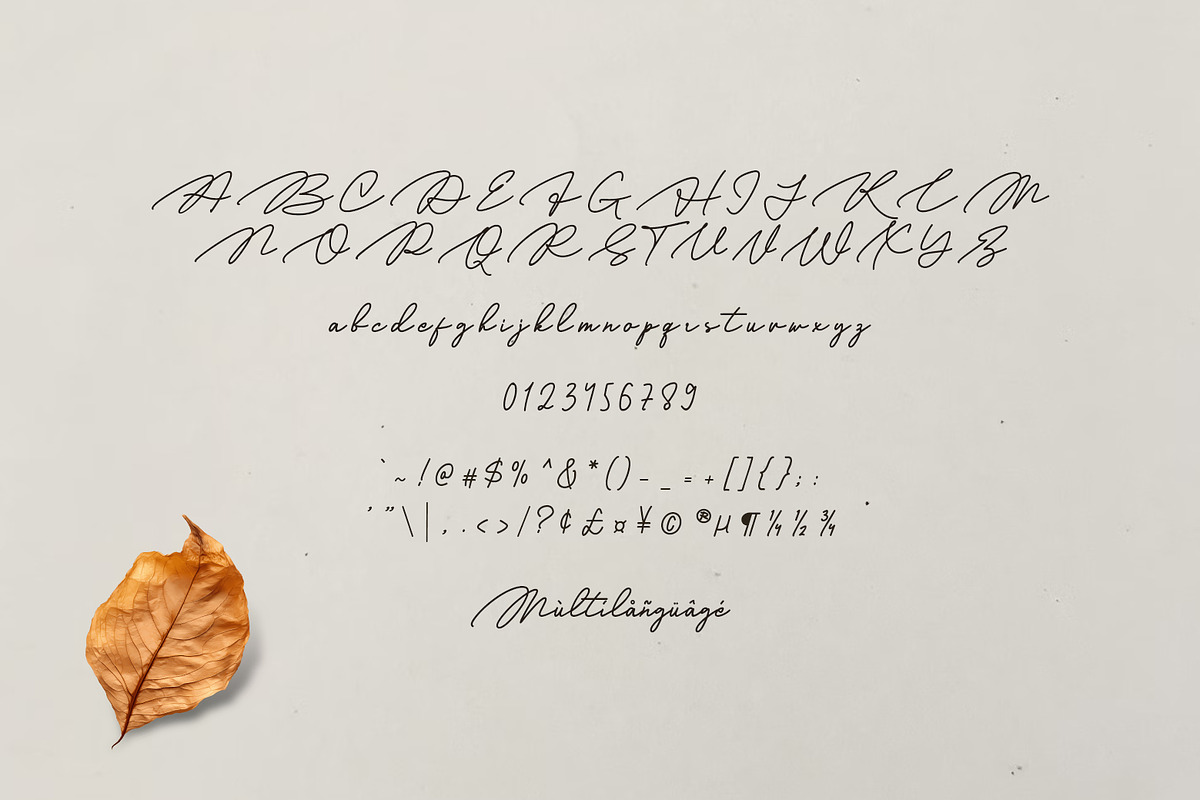 A B C D E F G H I J K L M
N O P Q R S T U V W X Y Z
a b c d e f g h i j k l m n o p q r s t u v w x y z
0 1 2 3 4 5 6 7 8 9
` ~ ! @ # $ % ^ & * ( ) - _ = + [ ] { } ; :
' " \ | , . < > / ? ¢ £ ¤ ¥ © ® µ ¶ ¼ ½ ¾
Mùltílåñgüâgé